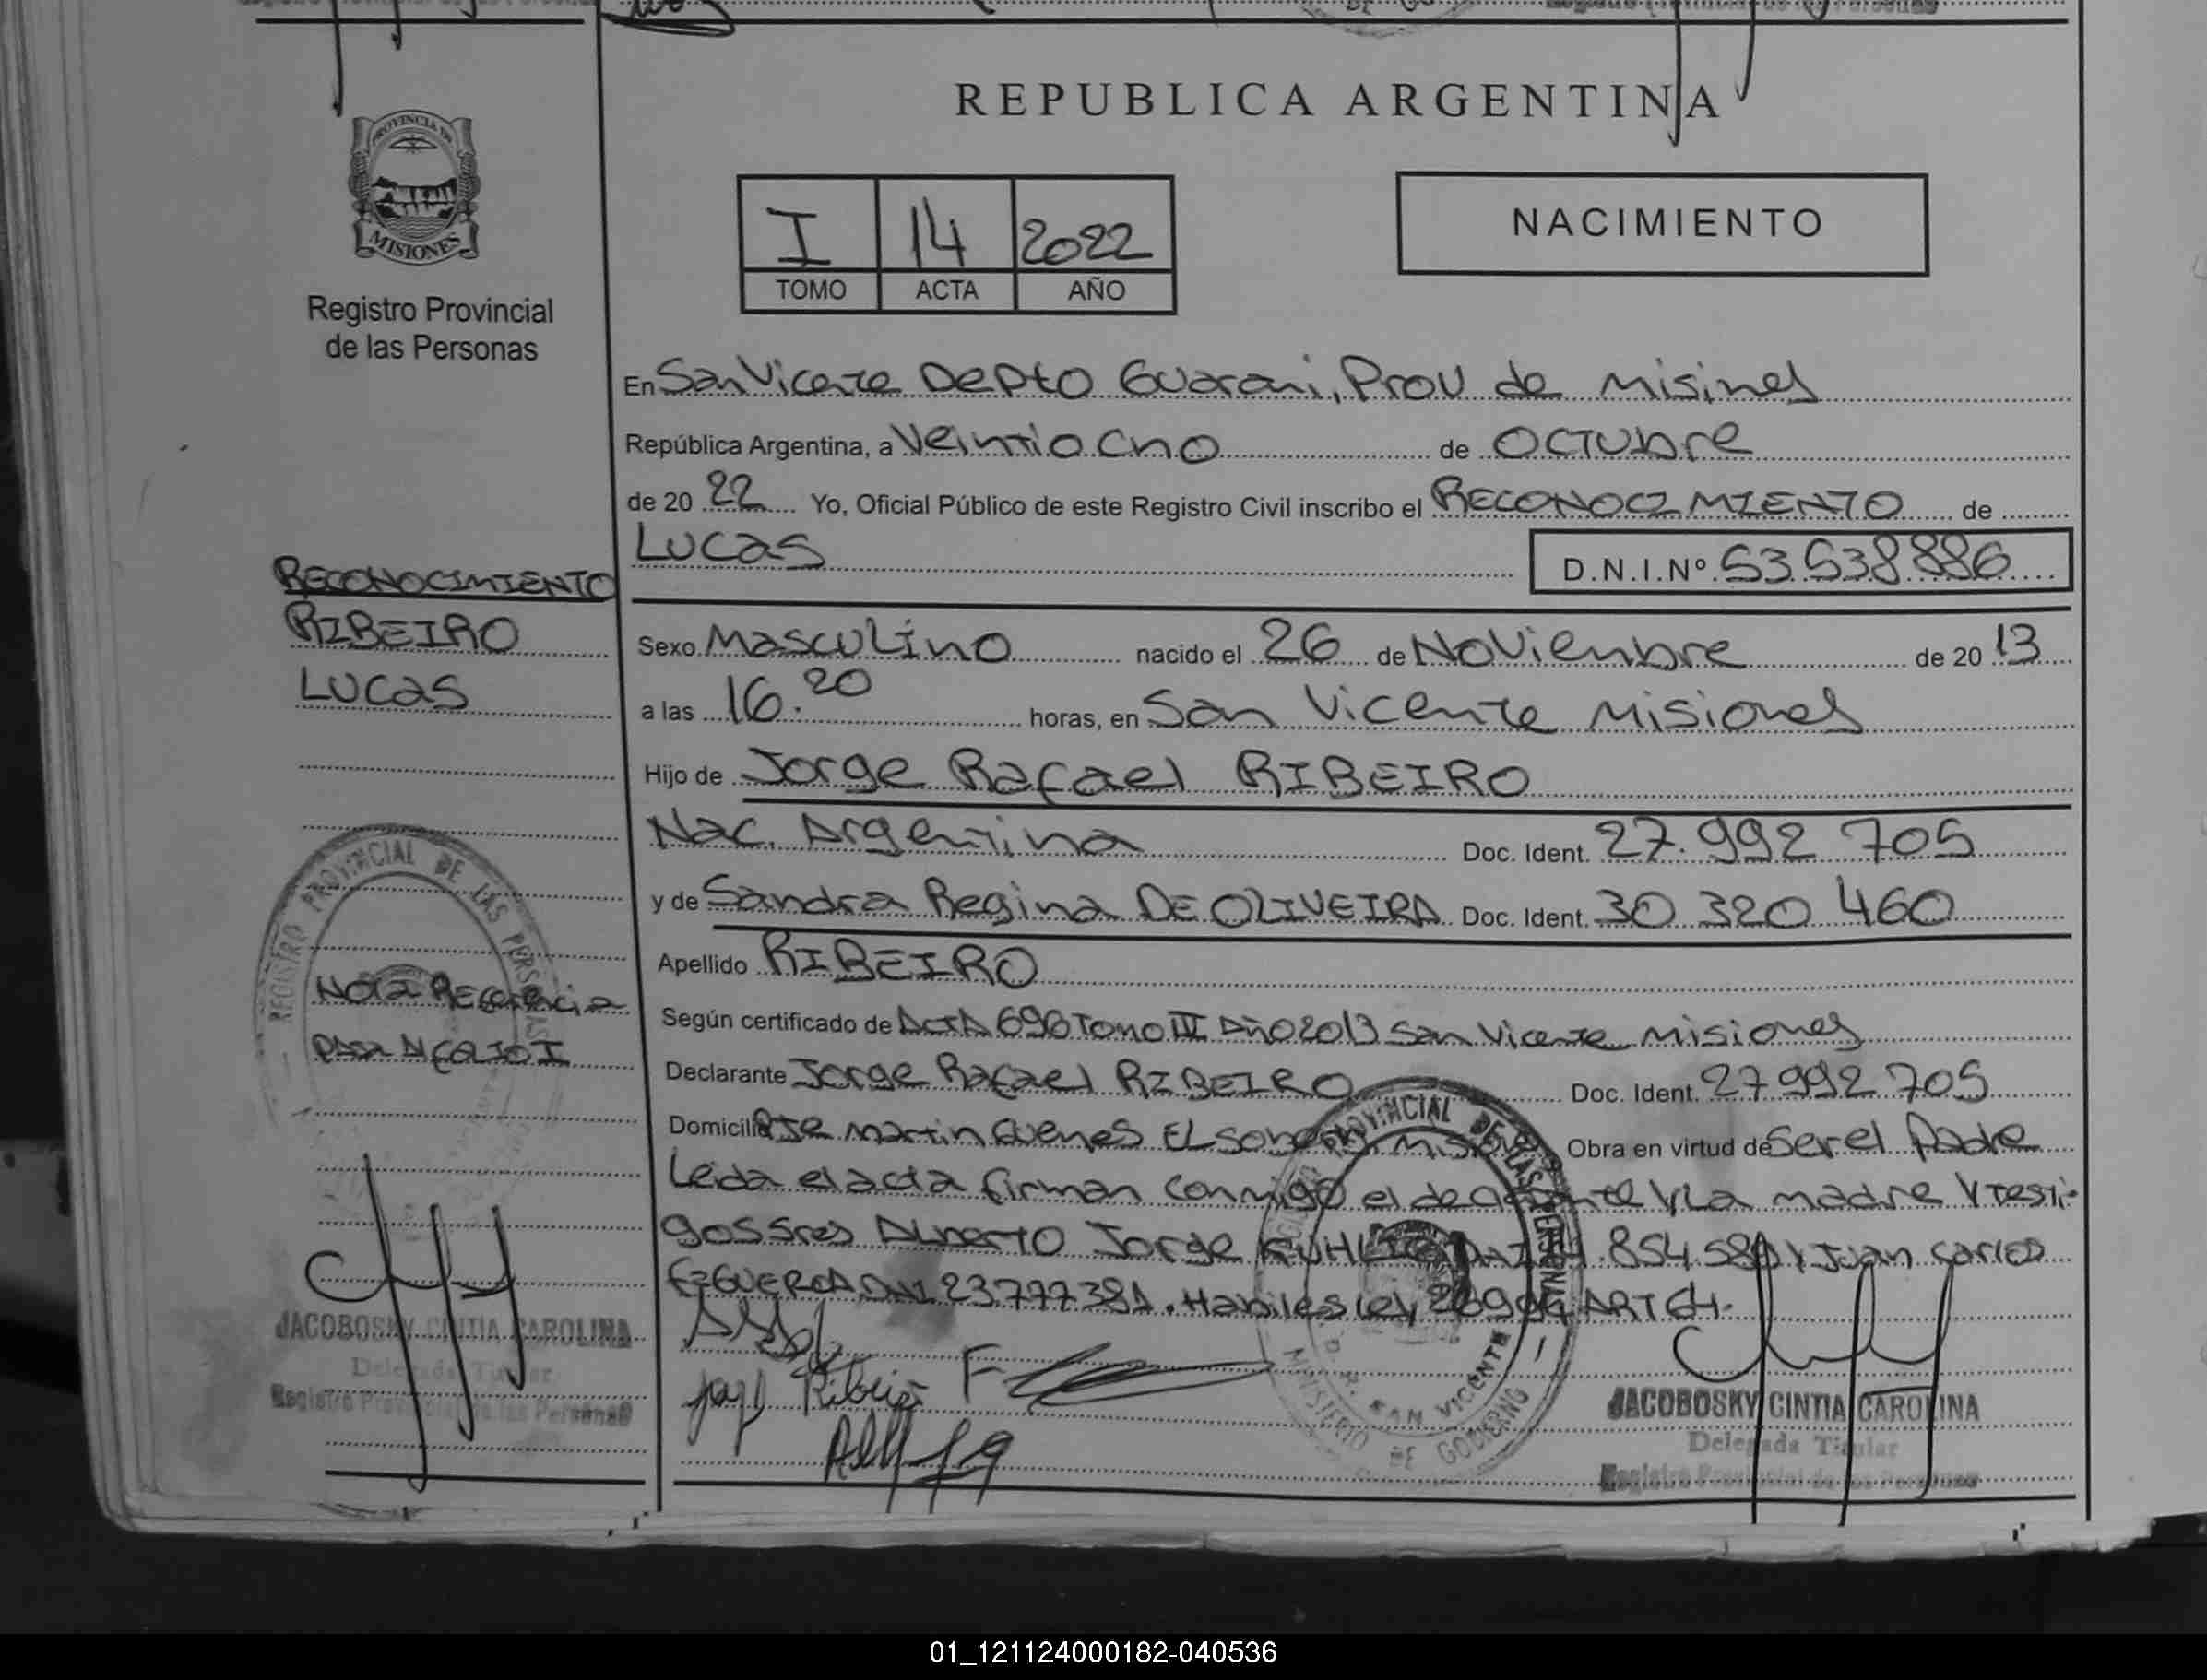 REPUBLICA ARGENTINA
PROVINCIA DE
MISIONES
Registro Provincial
de las Personas
I 14 2022
TOMO ACTA AÑO
NACIMIENTO
En San Vicente Depto Guarani, Prov de Misines
República Argentina, a Veintiocho de Octubre
de 20 22 Yo, Oficial Público de este Registro Civil inscribo el RECONOCIMIENTO de
Lucas
D.N.I.Nº 53.538.886
RECONOCIMIENTO
RIBEIRO
Lucas
Sexo Masculino nacido el 26 de Noviembre de 20 13
a las 16.20 horas, en San Vicente Misiones
Hijo de Jorge Rafael RIBEIRO
Nac. Argentina Doc. Ident. 27.992 705
y de Sandra Regina DE OLIVEIRA Doc. Ident. 30 320 460
Apellido RIBEIRO
Según certificado de Acta 696 Tomo III Año 2013 San Vicente Misiones
Declarante Jorge Rafael RIBEIRO Doc. Ident. 27 992 705
Domicilio Pje Martin Guemes EL Misiones Obra en virtud de Ser el Padre
Leida el acta firman conmigo el declarante y La madre y testi-
gos Sres Alberto Jorge 854.589 y Juan Carlos
FIGUEROA DNI 23.777381. Habiles Ley ART 64.
REGISTRO PROVINCIAL DE LAS PERSONAS
Nota Referencia
para
Jorge Ribeiro
REGISTRO PROVINCIAL DE LAS PERSONAS
SAN VICENTE
MINISTERIO DE GOBIERNO
JACOBOSKY CINTIA CAROLINA
Delegada Titular
Registro Provincial de las Personas
JACOBOSKY CINTIA CAROLINA
Delegada Titular
Registro Provincial de las Personas
01_121124000182-040536